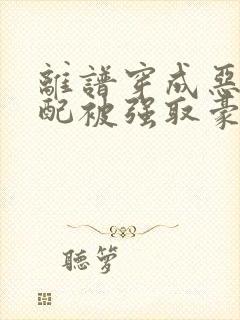 離譜穿成惡
配被强取豪
聽箩